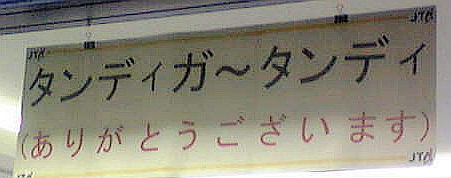 JTA JTA
タンディガ～タンディ
(ありがとうございます)
JTA JTA